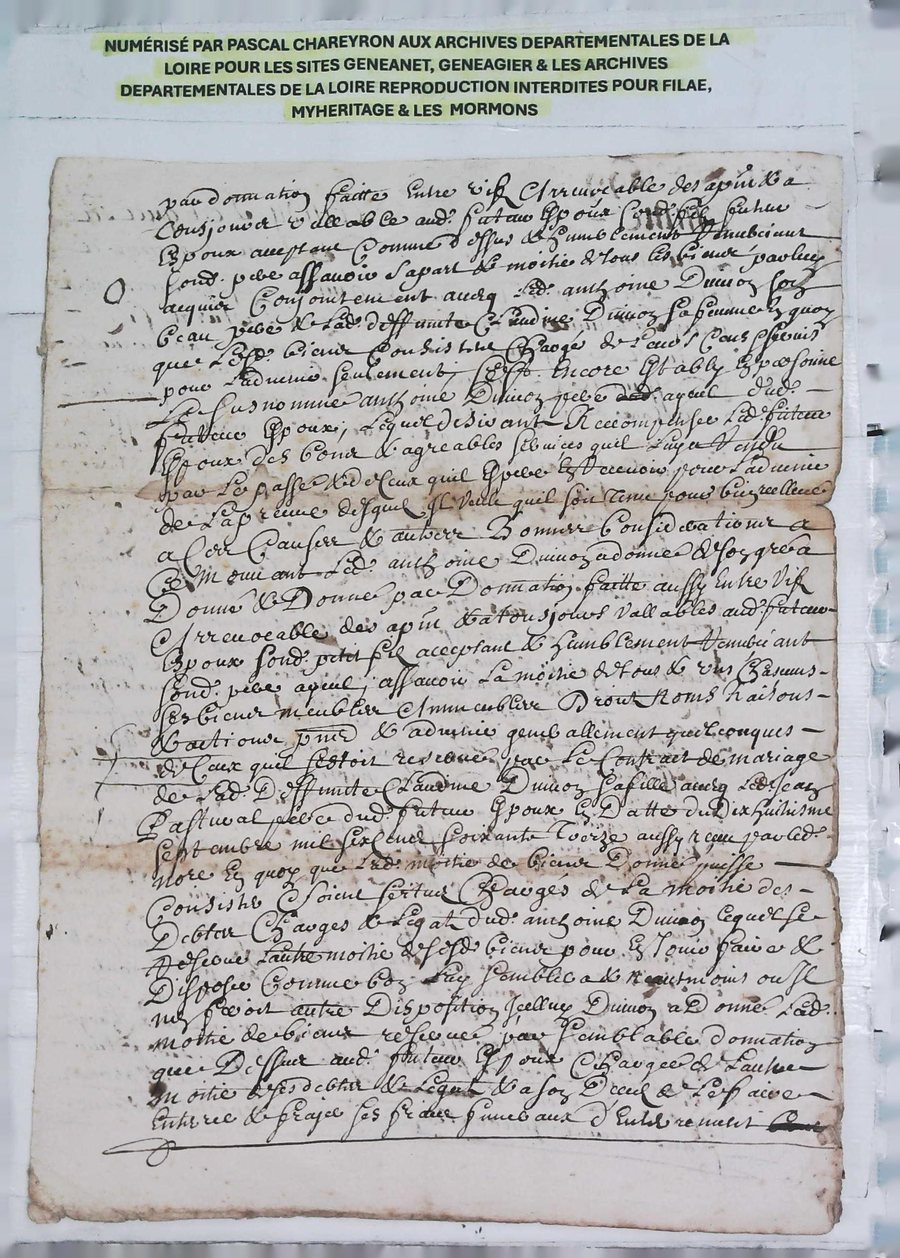 NUMÉRISÉ PAR PASCAL CHAREYRON AUX ARCHIVES DEPARTEMENTALES DE LA
LOIRE POUR LES SITES GENEANET, GENEAGIER & LES ARCHIVES
DEPARTEMENTALES DE LA LOIRE REPRODUCTION INTERDITES POUR FILAE,
MYHERITAGE & LES MORMONS
par donnation faitte entre vifz & irrevocable des a pnt & a
tousjours vallable aud. futur espoux sond. filz futur
espoux acceptant comme dessus & humblement remerciant
sond. pere assavoir sa part & moitie de tous les biens par luy
acquis conjointement avecq led. anthoine Dumon son
beau pere & lad. deffunte Claudine Dumon sa femme en quoy
que lesd. biens consistent charge de leurs
pour ladvenir seullement, sest encore estably en personne
le susnomme anthoine Dumon ayeul dud.
futeur espoux, lequel desirant recompenser led. futeur
espoux des bons & agreables services quil luy a rendu
par le passe & de ceux quil espere en recevoir pour ladvenir
de la preuve desquelz il veult quil soit tenu pour
a ces causes & autres bonnes considerations a
ce mouvant led. anthoine Dumon a donne de son gre a
donne & donne par donnation faitte aussy entre vifz
& irrevocable des a pnt & a tousjours vallables aud. futeur
espoux sond. petit filz acceptant & humblement remerciant
sond. pere ayeul, assavoir la moitie de tous & uns chascuns
ses biens meubles immeubles droits noms raisons
& actions pnts & advenir generallement quelconques
& ceux quil sestoit reserve par le contrat de mariage
de lad. deffunte Claudine Dumon sa fille avecq led. Jean
Pastural pere dud. futeur espoux en datte du dix huitiesme
septembre mil six cens soixante treize aussy receu par led.
nore en quoy que lad. moitie de biens donne puisse
consister & soient scitues charges de la moitie des
debtes charges & legatz dud. anthoine Dumon lequel se
reserve lautre moitie de sesd. biens pour en jouir faire &
disposer comme bon luy semblera & neantmoins ou il
nen feroit autre disposition icelluy Dumon a donne lad.
moitie de biens reserve par semblable donnation
que dessus aud. futeur espoux chargee de lautre
moitie de ses debtes & legatz & a son deceds de le faire
enterre & fraye ses frais funeraux